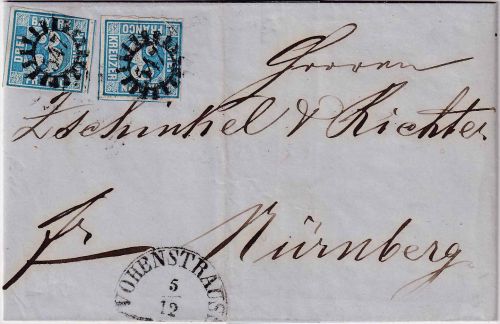 KREUZER
Herren
Zschinkel & Richter
fr Nürnberg
VOHENSTRAUSS
5
12